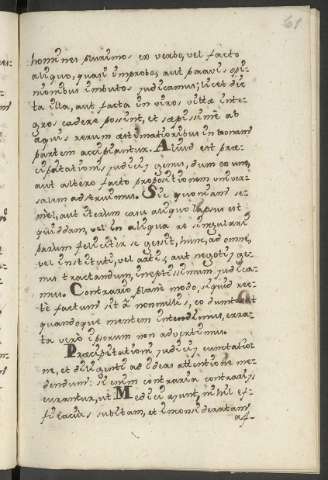 61
homines plurimos ex verbo, vel facto
aliquo, quasi improbos, aut pravis opi-
nionibus imbutos judicamus; licet dic-
ta illa, aut facta in viros vitæ inte-
gros cadere possint, et sæpissime ab
æquis rerum æstimatoribus in bonam
partem accipiantur. Aliud est præ-
cipitationis judicij genus, dum ex uno,
aut altero facto propositionem univer-
salem adstruimus. Sic quoniam se-
mel, aut iterum casu aliquo lapsus est
quiddam, vel in aliqua re singulari
parum feliciter se gessit, hunc, ad omne,
vel institutu, vel artes, aut negotij ge-
nus tractandum, ineptissimum judica-
mus. Contrario plane modo, siquid rec-
te factum sit à nonnullis, eo dumtaxat
quandoque mentem intendimus, errra-
ta vero ipsorum non advertimus.
Præcipitationi judicij cunctatio-
ne, et diligenti ad ideas attentione me-
dendum: si enim contraria contrarijs
curantur, ut Medici ajunt, nihil ef-
ficacius subitam, et inconsideratam